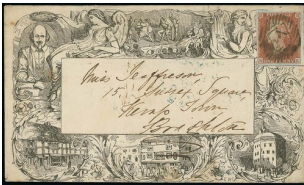 Miss Jeaffreson
15 Sussex Square
Kemp Town
Brighton